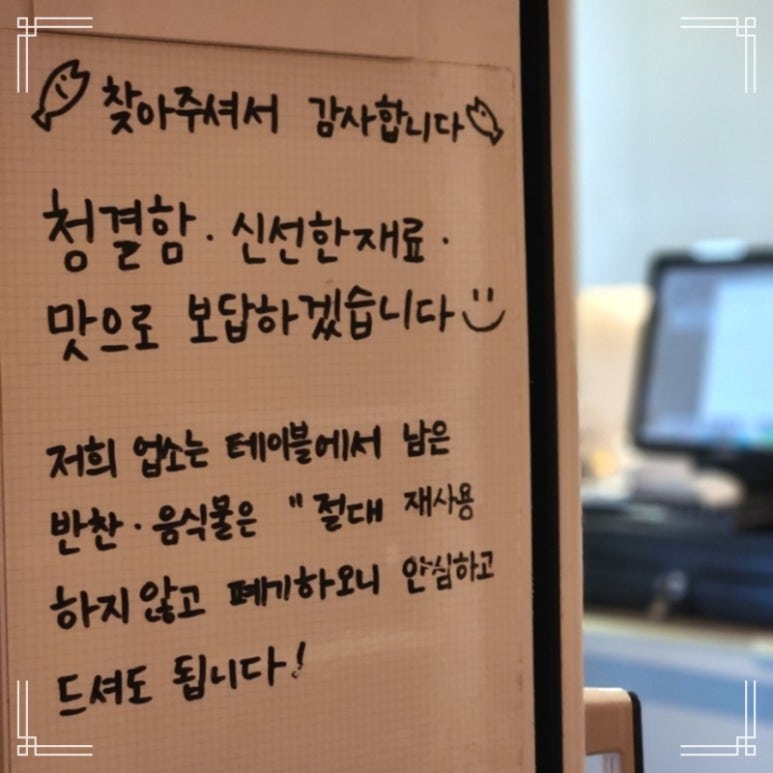 찾아주셔서 감사합니다
청결함 · 신선한재료 ·
맛으로 보답하겠습니다
저희 업소는 테이블에서 남은
반찬 · 음식물은 "절대 재사용
하지않고 폐기하오니 안심하고
드셔도 됩니다!